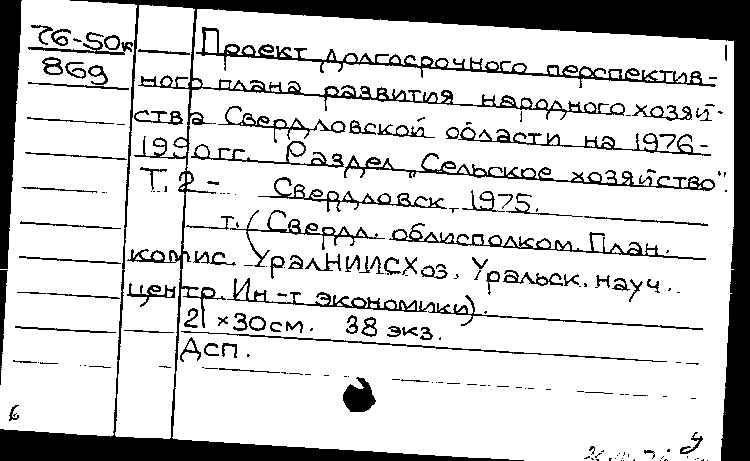 76-50к
869
Проект долгосрочного перспектив-
ного плана развития народного хозяй-
ства Свердловской области на 1976-
1990 гг. Раздел „Сельское хозяйство".
Т. 2 - Свердловск, 1975.
т. (Свердл. облисполком. План.
комис. УралНИИСХоз. Уральск. науч.
центр. Ин-т экономики).
21 × 30 см. 38 экз.
Дсп.
6